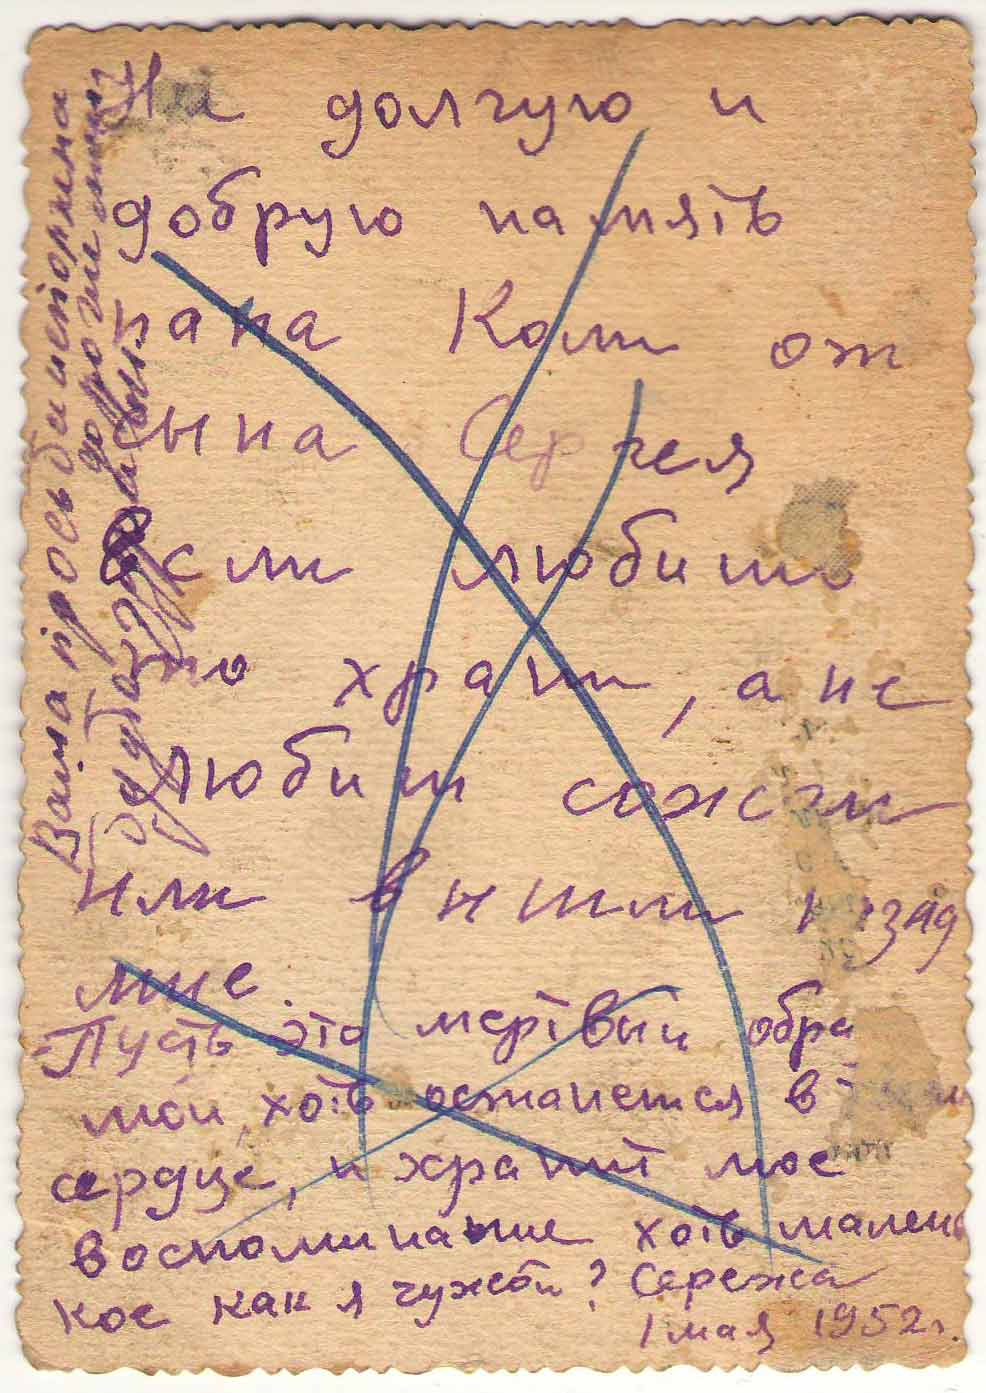 На долгую и
добрую память
папа Коли от
сына Сергея
Если любишь
то храни, а не
любиш сожги
или вышли назад
мне.
Пусть это мертвый обра
мой, хоть останется в
сердце, и храниш мое
воспоминание хоть малень
кое как я чужой? Сережа
1 мая 1952 г.
Ваша просьба исторжена
дорогие